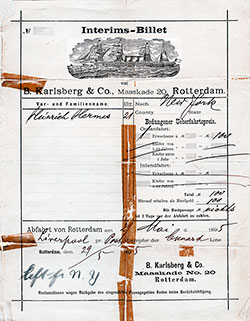 №
Interims-Billet
von
B. Karlsberg & Co., Maaskade 20, Rotterdam.
Vor- und Familienname. Nach New York
Heinrich Hermes 21 County State
Bedungener Ueberfahrtspreis.
Oceanfahrt:
1 Erwachsene à 100
Kinder von
1-12 Jahren
Kinder unter
1 Jahr
Inlandfahrt:
Erwachsene à
Kinder von
Total 100
Hierauf erhalten als Handgeld 100
Die Restpassage nichts
ist 1 Tage vor der Abfahrt zu zahlen.
Abfahrt von Rotterdam am Mai 1895
Liverpool per Postdampfer der Cunard Line
Rotterdam, den 29/5 1895
B. Karlsberg & Co.
Maaskade No. 20
Rotterdam.
N.Y
Reclamationen wegen Rückgabe des eingezahlten Passagegeldes finden keine Berücksichtigung.